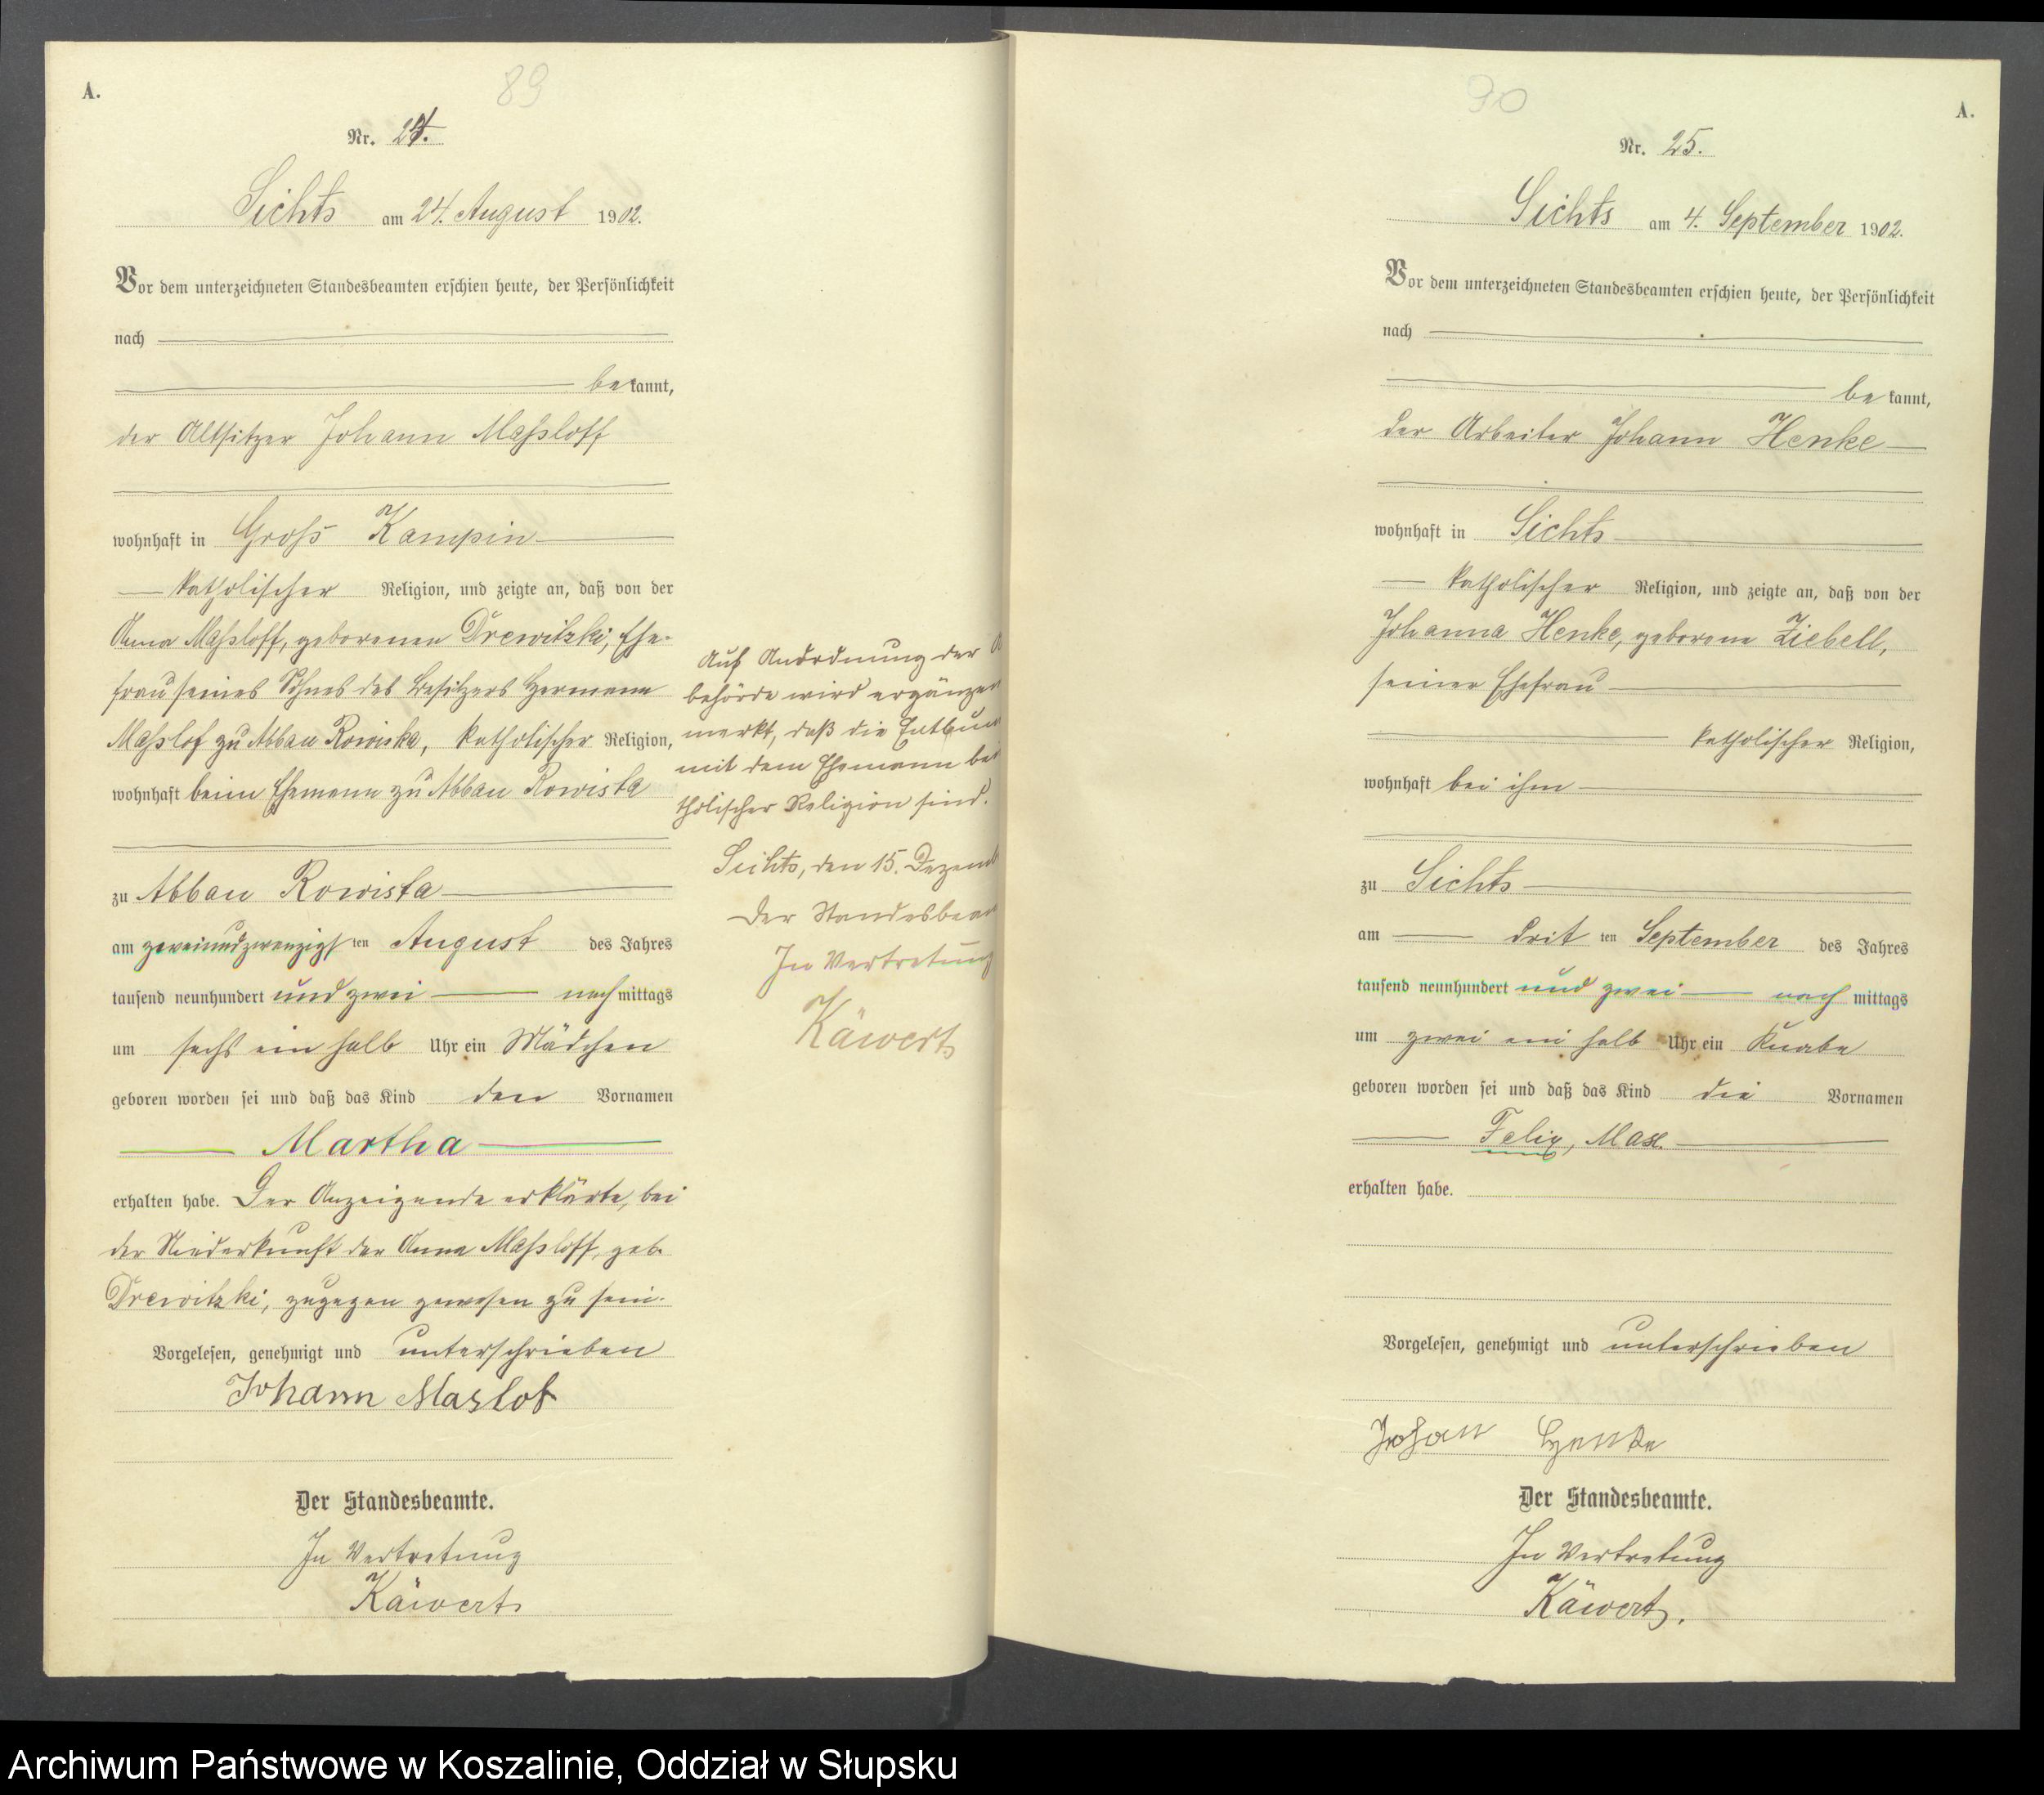 A.
89
Nr. 24.
Sichts am 24. August 1902.
Vor dem unterzeichneten Standesbeamten erschien heute, der Persönlichkeit
nach
bekannt,
der Altsitzer Johann Maßloff
wohnhaft in Groß Kampin
katholischer Religion, und zeigte an, daß von der
Anna Maßloff, geborenen Drewitzki, Ehe-
frau seines Sohnes des Besitzers Hermann
Maßlof zu Abbau Rowista, katholischer Religion,
wohnhaft beim Ehemann zu Abbau Rowista
zu Abbau Rowista
am zweiundzwanzigsten August des Jahres
tausend neunhundert und zwei nachmittags
um sechs ein halb Uhr ein Mädchen
geboren worden sei und daß das Kind den Vornamen
Martha
erhalten habe. Der Anzeigende erklärte, bei
der Niederkunft der Anna Maßloff, geb.
Drewitzki, zugegen gewesen zu sein.
Vorgelesen, genehmigt und unterschrieben
Johann Maslof
Der Standesbeamte.
In Vertretung
Käwert
Auf Anordnung der A
behörde wird ergänzen
merkt, daß die Entbun
mit dem Ehemann bei
tholischer Religion sind.
Sichts, den 15. Dezemb
Der Standesbeam
In Vertretung
Käwert
90
A.
Nr. 25.
Sichts am 4. September 1902.
Vor dem unterzeichneten Standesbeamten erschien heute, der Persönlichkeit
nach
bekannt,
der Arbeiter Johann Henke
wohnhaft in Sichts
katholischer Religion, und zeigte an, daß von der
Johanna Henke, geborene Ziebell,
seiner Ehefrau
katholischer Religion,
wohnhaft bei ihm
zu Sichts
am dritten September des Jahres
tausend neunhundert und zwei nachmittags
um zwei ein halb Uhr ein Knabe
geboren worden sei und daß das Kind die Vornamen
Felix, Max.
erhalten habe.
Vorgelesen, genehmigt und unterschrieben
Johan Henke
Der Standesbeamte.
In Vertretung
Käwert.
Archiwum Państwowe w Koszalinie, Oddział w Słupsku